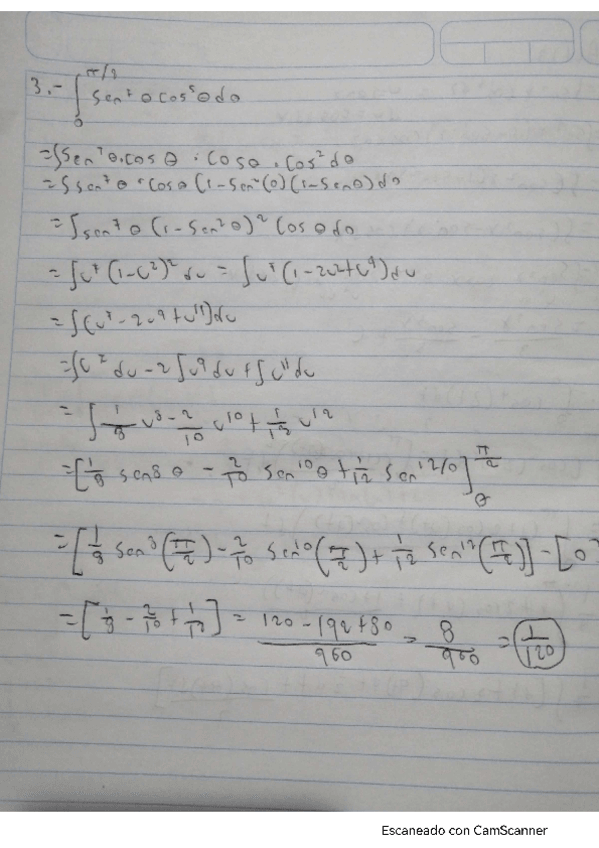 3.- ∫₀^(π/2) sen⁷ θ cos⁵ θ dθ
= ∫ sen⁷ θ · cos θ · cos θ · cos² dθ
= ∫ sen⁷ θ · cos θ (1 - sen² (θ) (1 - sen θ) dθ
= ∫ sen⁷ θ (1 - sen² θ)² cos θ dθ
= ∫ u⁷ (1 - u²)² du = ∫ u⁷ (1 - 2u2 + u⁴) du
= ∫ (u⁷ - 2u⁹ + u¹¹) du
= ∫ u⁷ du - 2 ∫ u⁹ du + ∫ u¹¹ du
= ∫ 1/8 u⁸ - 2/10 u¹⁰ + 1/12 u¹²
= [1/8 sen8 θ - 2/10 sen¹⁰ θ + 1/12 sen¹² θ] π/2 θ
= [1/8 sen⁸ (π/2) - 2/10 sen¹⁰ (π/2) + 1/12 sen¹² (π/2)] - [0]
= [1/8 - 2/10 + 1/12] = (120 - 192 + 80)/960 = 8/960 = 1/120
Escaneado con CamScanner